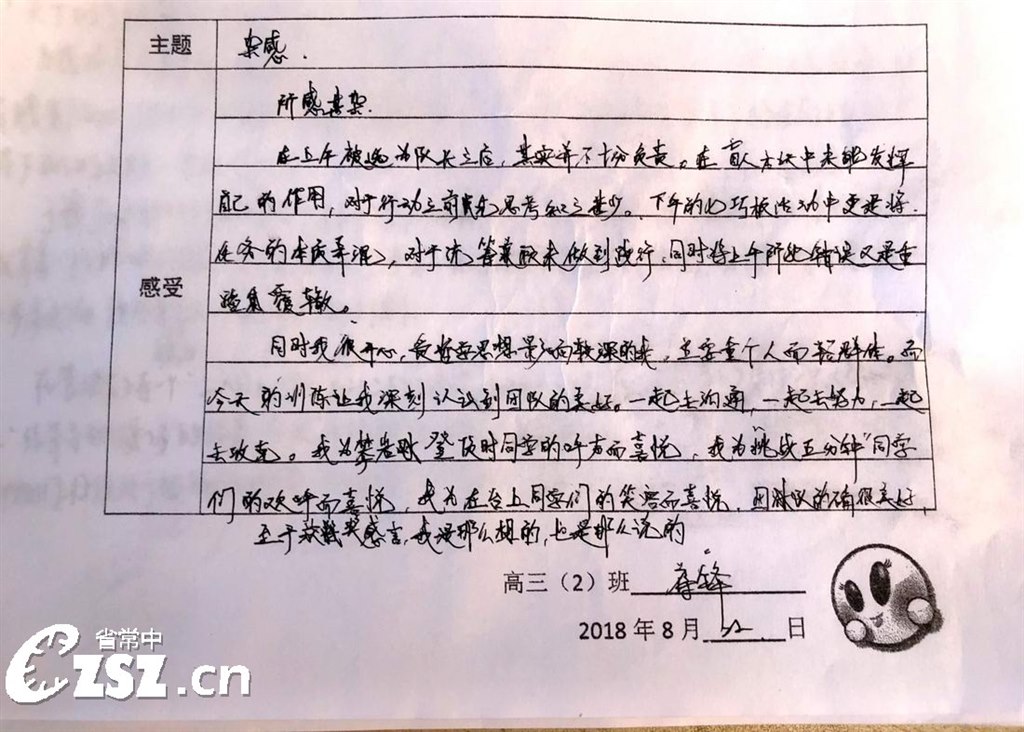 主题 杂感.
所感甚杂.
在上午被选为队长之后,其实并不十分负责。在盲人方块中未能发挥
自己的作用,对于行动之前的思考组之甚少。下午的七巧板活动中更是将
任务的本质弄混,对于答案未做到践行,同时将上午所犯错误又是重
蹈覆辙。
感受
同时我很开心,受思想影响较深的我,重个人而轻群体。而
今天的训练让我深刻认识到团队的美好。一起去沟通,一起去努力,一起
去攻克。我为攀岩时同学的呼声而喜悦,我为"挑战五分钟"同学
们的欢呼而喜悦,我为在台上同学们的笑容而喜悦,团队的确很美好,
至于获奖感言,我是那么想的,也是那么说的
高三(2)班
2018年8月22日
省常中
CZSZ.cn